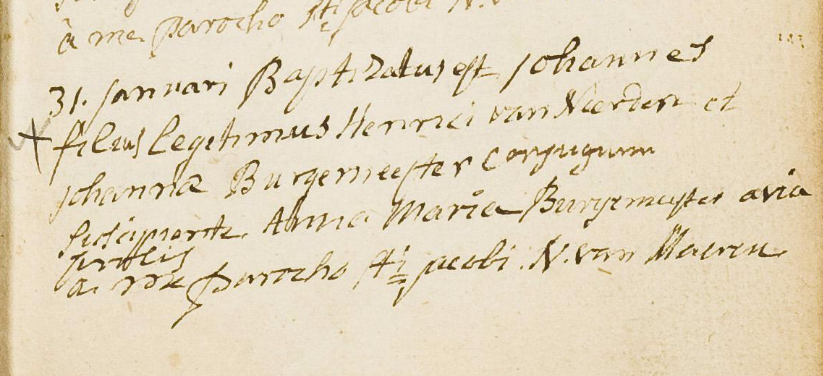 à me parocho Sti jacobi N. v
31. januari Baptizatus est Johannes
filius legitimus Henrici van Naerden et
johannæ Burgemeester Conjugum
suscipiente Anna Maria Burgemeester avia
prolis
a me parocho Sti jacobi. N. van Maeren